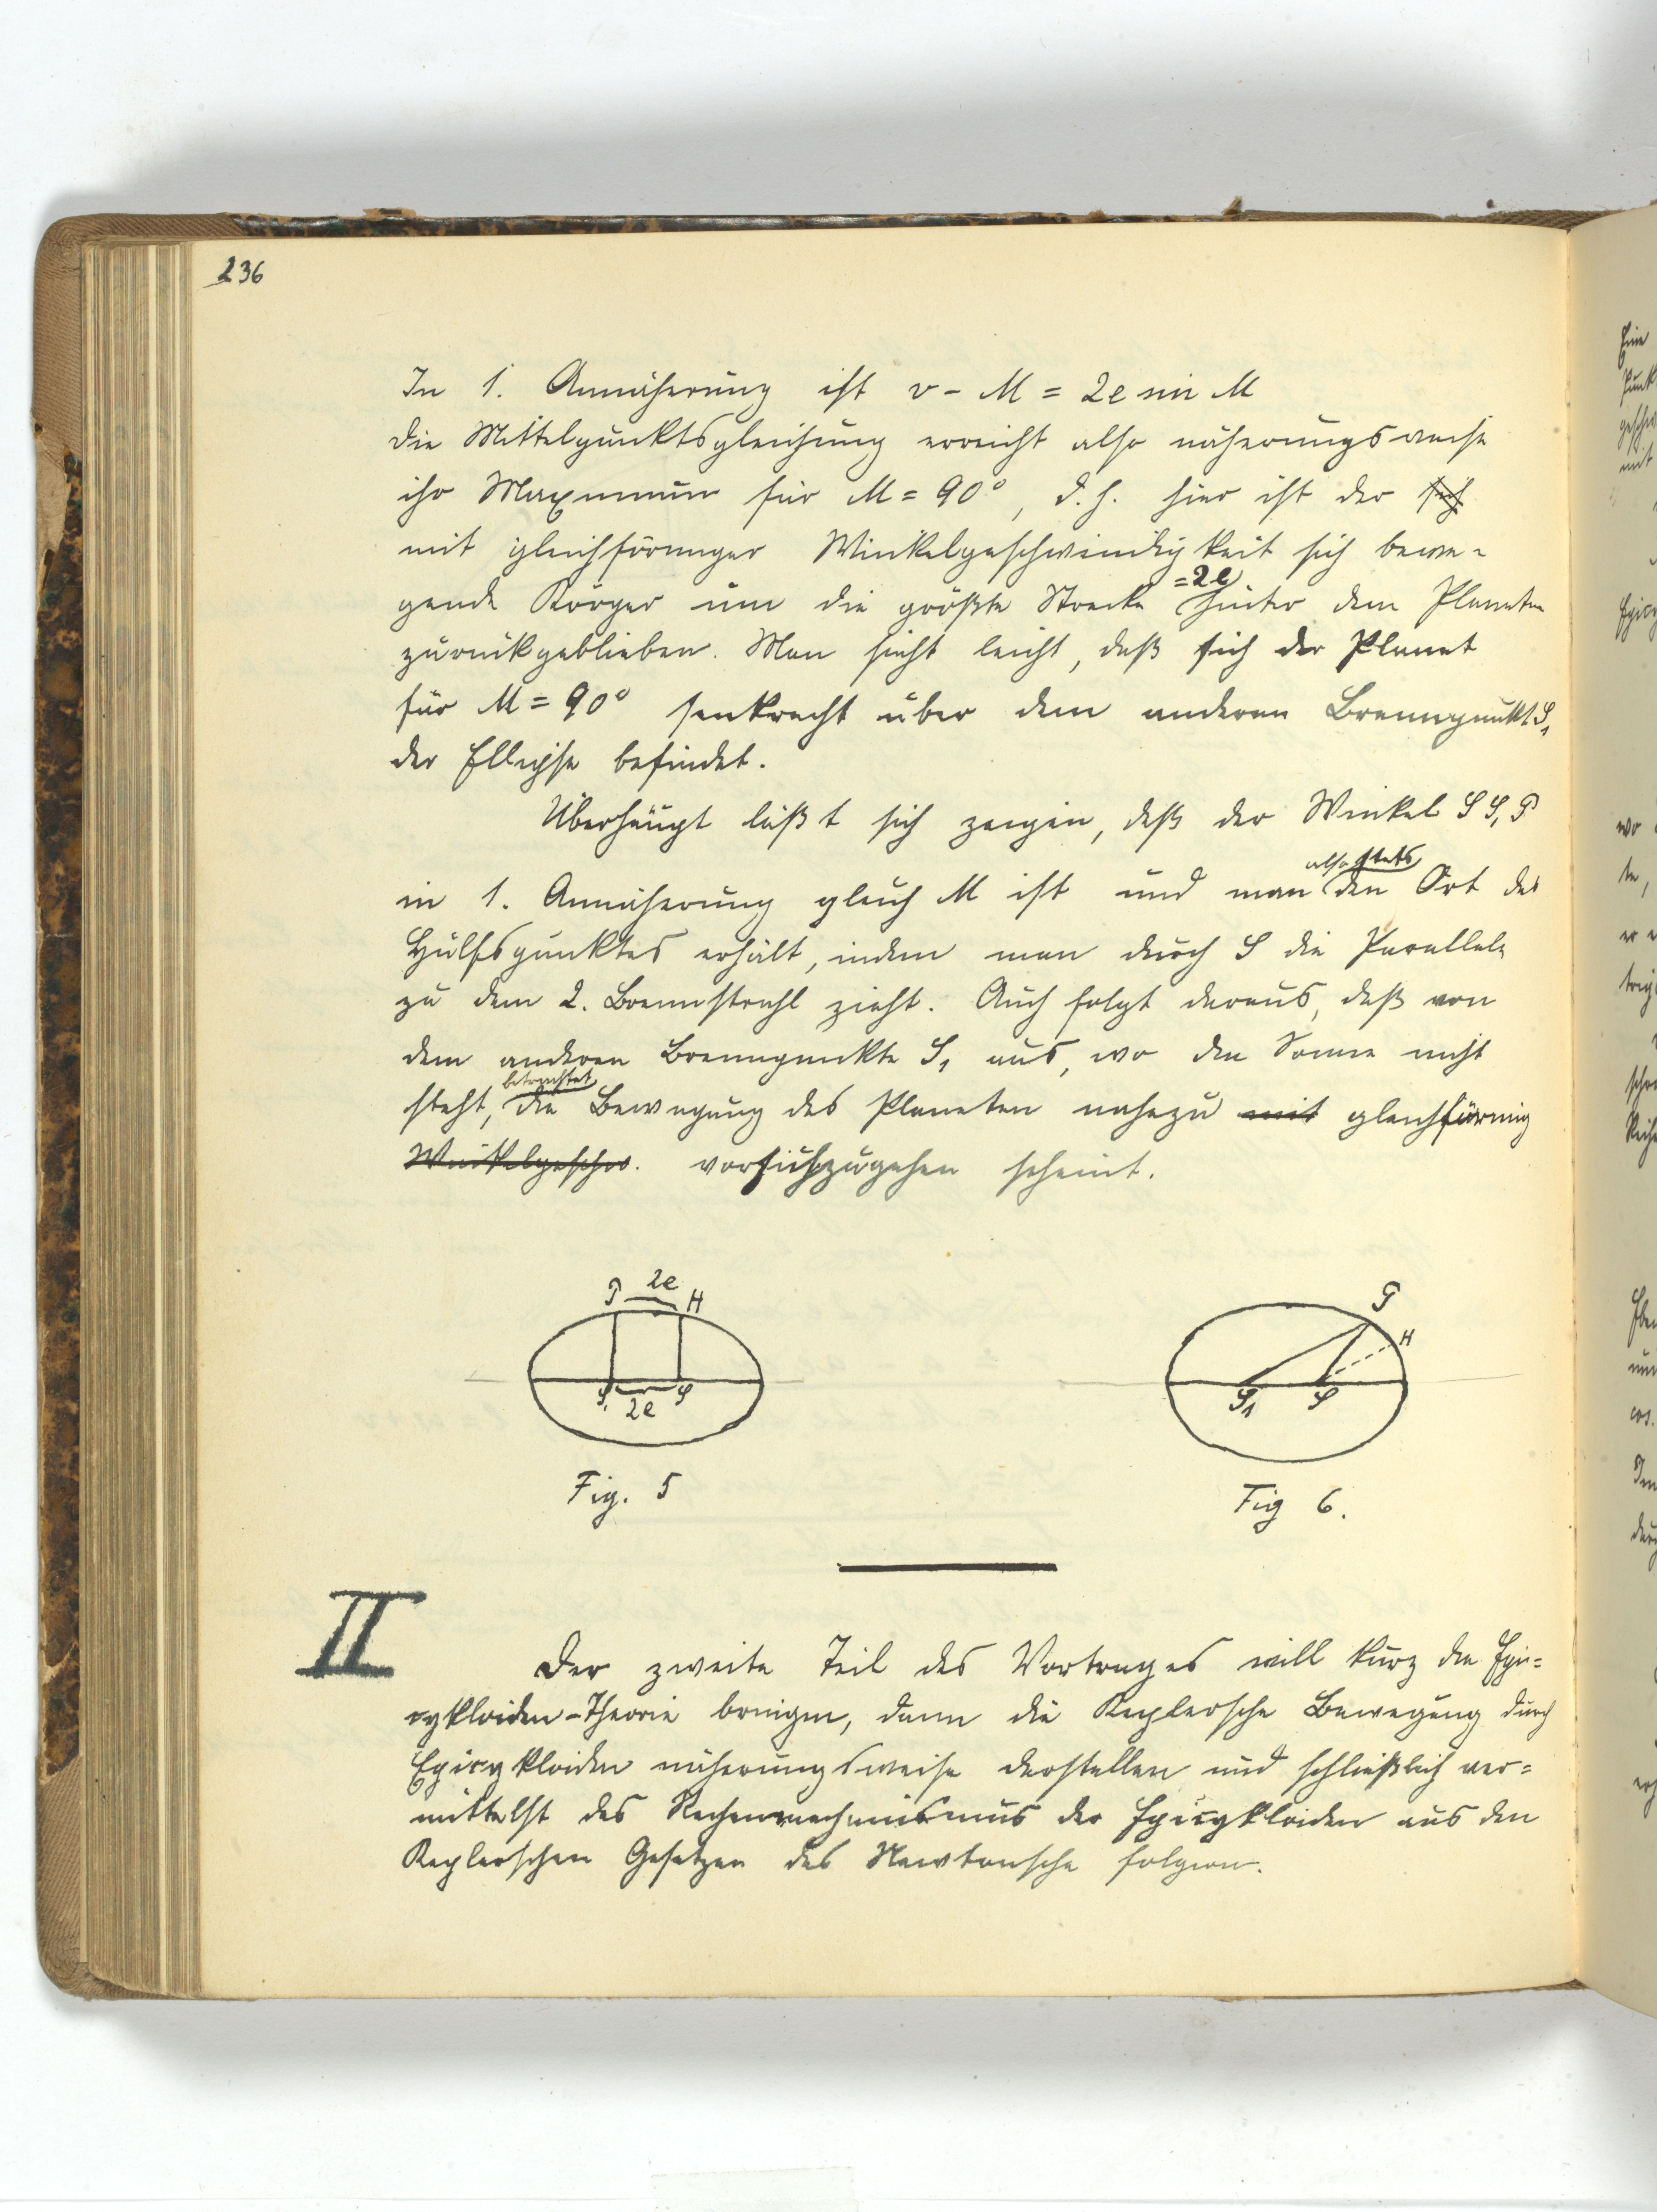 236
In 1. Annäherung ist v - M = 2e sin M
die Mittelpunktsgleichung erreicht also näherungsweise
ihr Maximum für M = 90°, d. h. hier ist der sich
mit gleichförmiger Winkelgeschwindigkeit sich bewe-
=2e
gende Körper um die größte Strecke hinter dem Planeten
zurückgeblieben. Man sieht leicht, daß sich der Planet
für M = 90° senkrecht über dem anderen Brennpunkt S₁
der Ellipse befindet.
Überhaupt läßt sich zeigen, daß der Winkel S S₁ P
also stets
in 1. Annäherung gleich M ist und man den Ort des
Hülfspunktes erhält, indem man durch S die Parallele
zu dem 2. Brennstrahl zieht. Auch folgt daraus, daß von
dem anderen Brennpunkte S₁ aus, wo die Sonne nicht
betrachtet
steht, die Bewegung des Planeten nahezu mit gleichförmig
Winkelgeschw. vorsichzugehen scheint.
P 2e H
S₁ 2e S
Fig. 5
P
H
S₁ S
Fig 6.
II
Der zweite Teil des Vortrages will kurz die Epi=
cykloiden-Theorie bringen, dann die Keplersche Bewegung durch
Epicykloiden näherungsweise darstellen und schließlich ver=
mittelst des Rechenmechanismus der Epicykloiden aus den
Keplerschen Gesetzen das Newtonsche folgern.